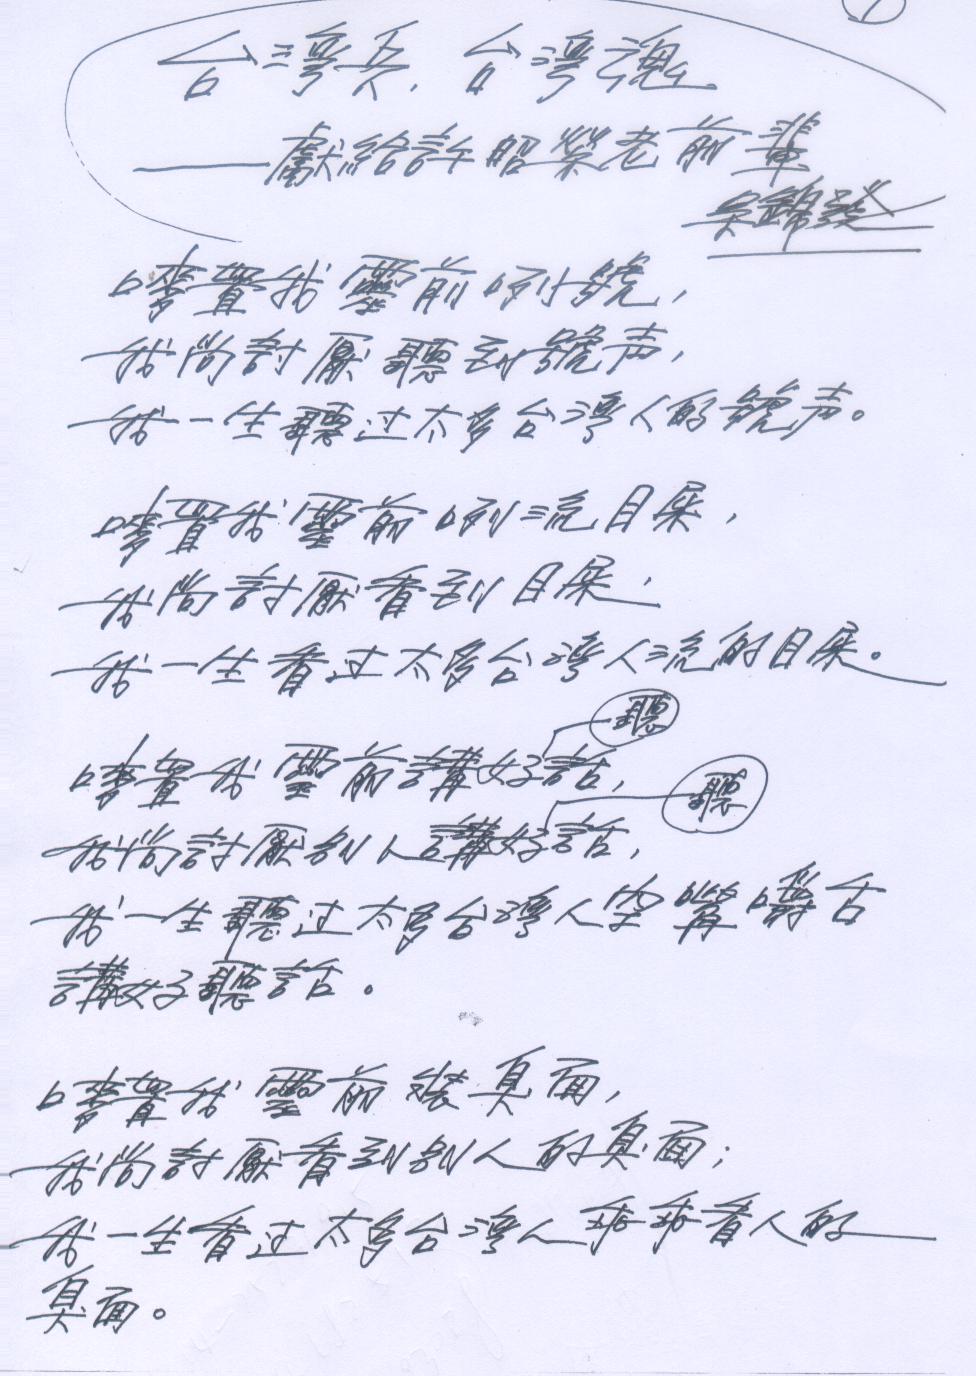 1
台灣兵，台灣魂
——獻給許昭榮老前輩
吳錦發
嘜置我靈前哭號，
我尚討厭聽到號声，
我一生聽过太多台灣人的號声。
嘜置我靈前哭流目屎，
我尚討厭看到目屎，
我一生看过太多台灣人流的目屎。
嘜置我靈前講好聽話，
我尚討厭別人講好聽話，
我一生聽过太多台灣人空嘴嚼舌
講好聽話。
嘜置我靈前裝臭面，
我尚討厭看到別人的臭面；
我一生看过太多台灣人乖乖看人的
臭面。